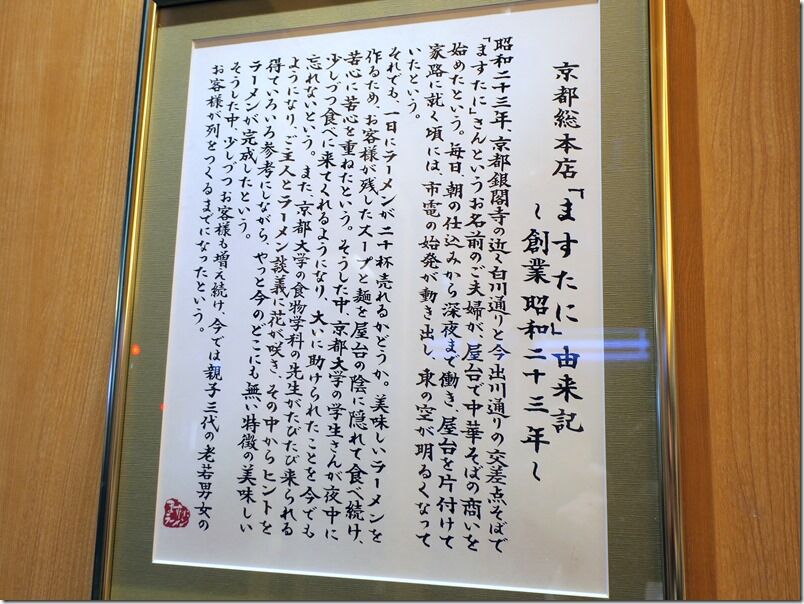 京都総本店「ますたに」由来記
〜創業昭和二十三年〜
昭和二十三年、京都銀閣寺の近く白川通りと今出川通りの交差点そばで
「ますたに」さんというお名前のご夫婦が、屋台で中華そばの商いを
始めたという。毎日、朝の仕込みから深夜まで働き、屋台を片付けて
家路に就く頃には、市電の始発が動き出し、東の空が明るくなって
いたという。
それでも、一日にラーメンが二十杯売れるかどうか。美味しいラーメンを
作るため、お客様が残したスープと麺を屋台の陰に隠れて食べ続け、
苦心に苦心を重ねたという。そうした中、京都大学の学生さんが夜中に
少しづつ食べに来てくれるようになり、大いに助けられたことを今でも
忘れないという。また、京都大学の食物学科の先生がたびたび来られる
ようになり、ご主人とラーメン談義に花が咲き、その中からヒントを
得ていろいろ参考にしながら、やっと今のどこにも無い特徴の美味しい
ラーメンが完成したという。
そうした中、少しづつお客様も増え続け、今では親子三代の老若男女の
お客様が列をつくるまでになったという。